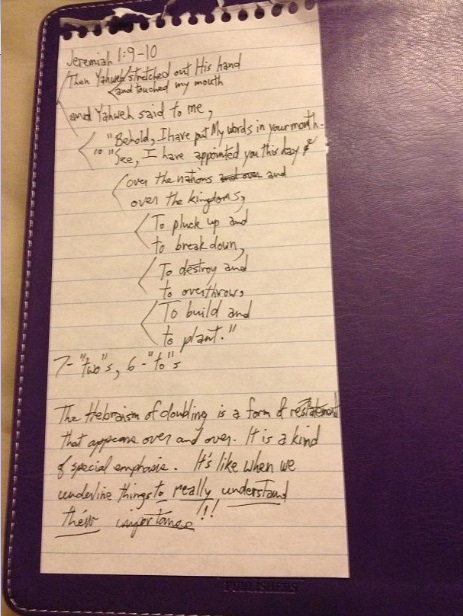 Jeremiah 1:9-10
Then Yahweh stretched out His hand
and touched my mouth
and Yahweh said to me,
"Behold, I have put My words in your mouth.
10 "See, I have appointed you this day
over the nations and over and
over the kingdoms,
To pluck up and
to break down,
To destroy and
to overthrow,
To build and
to plant."
7-"two"s, 6-"to"s
The Hebraism of doubling is a form of restatement
that appears over and over. It is a kind
of special emphasis. It's like when we
underline things to really understand
their importance!!
PUBLISHERS